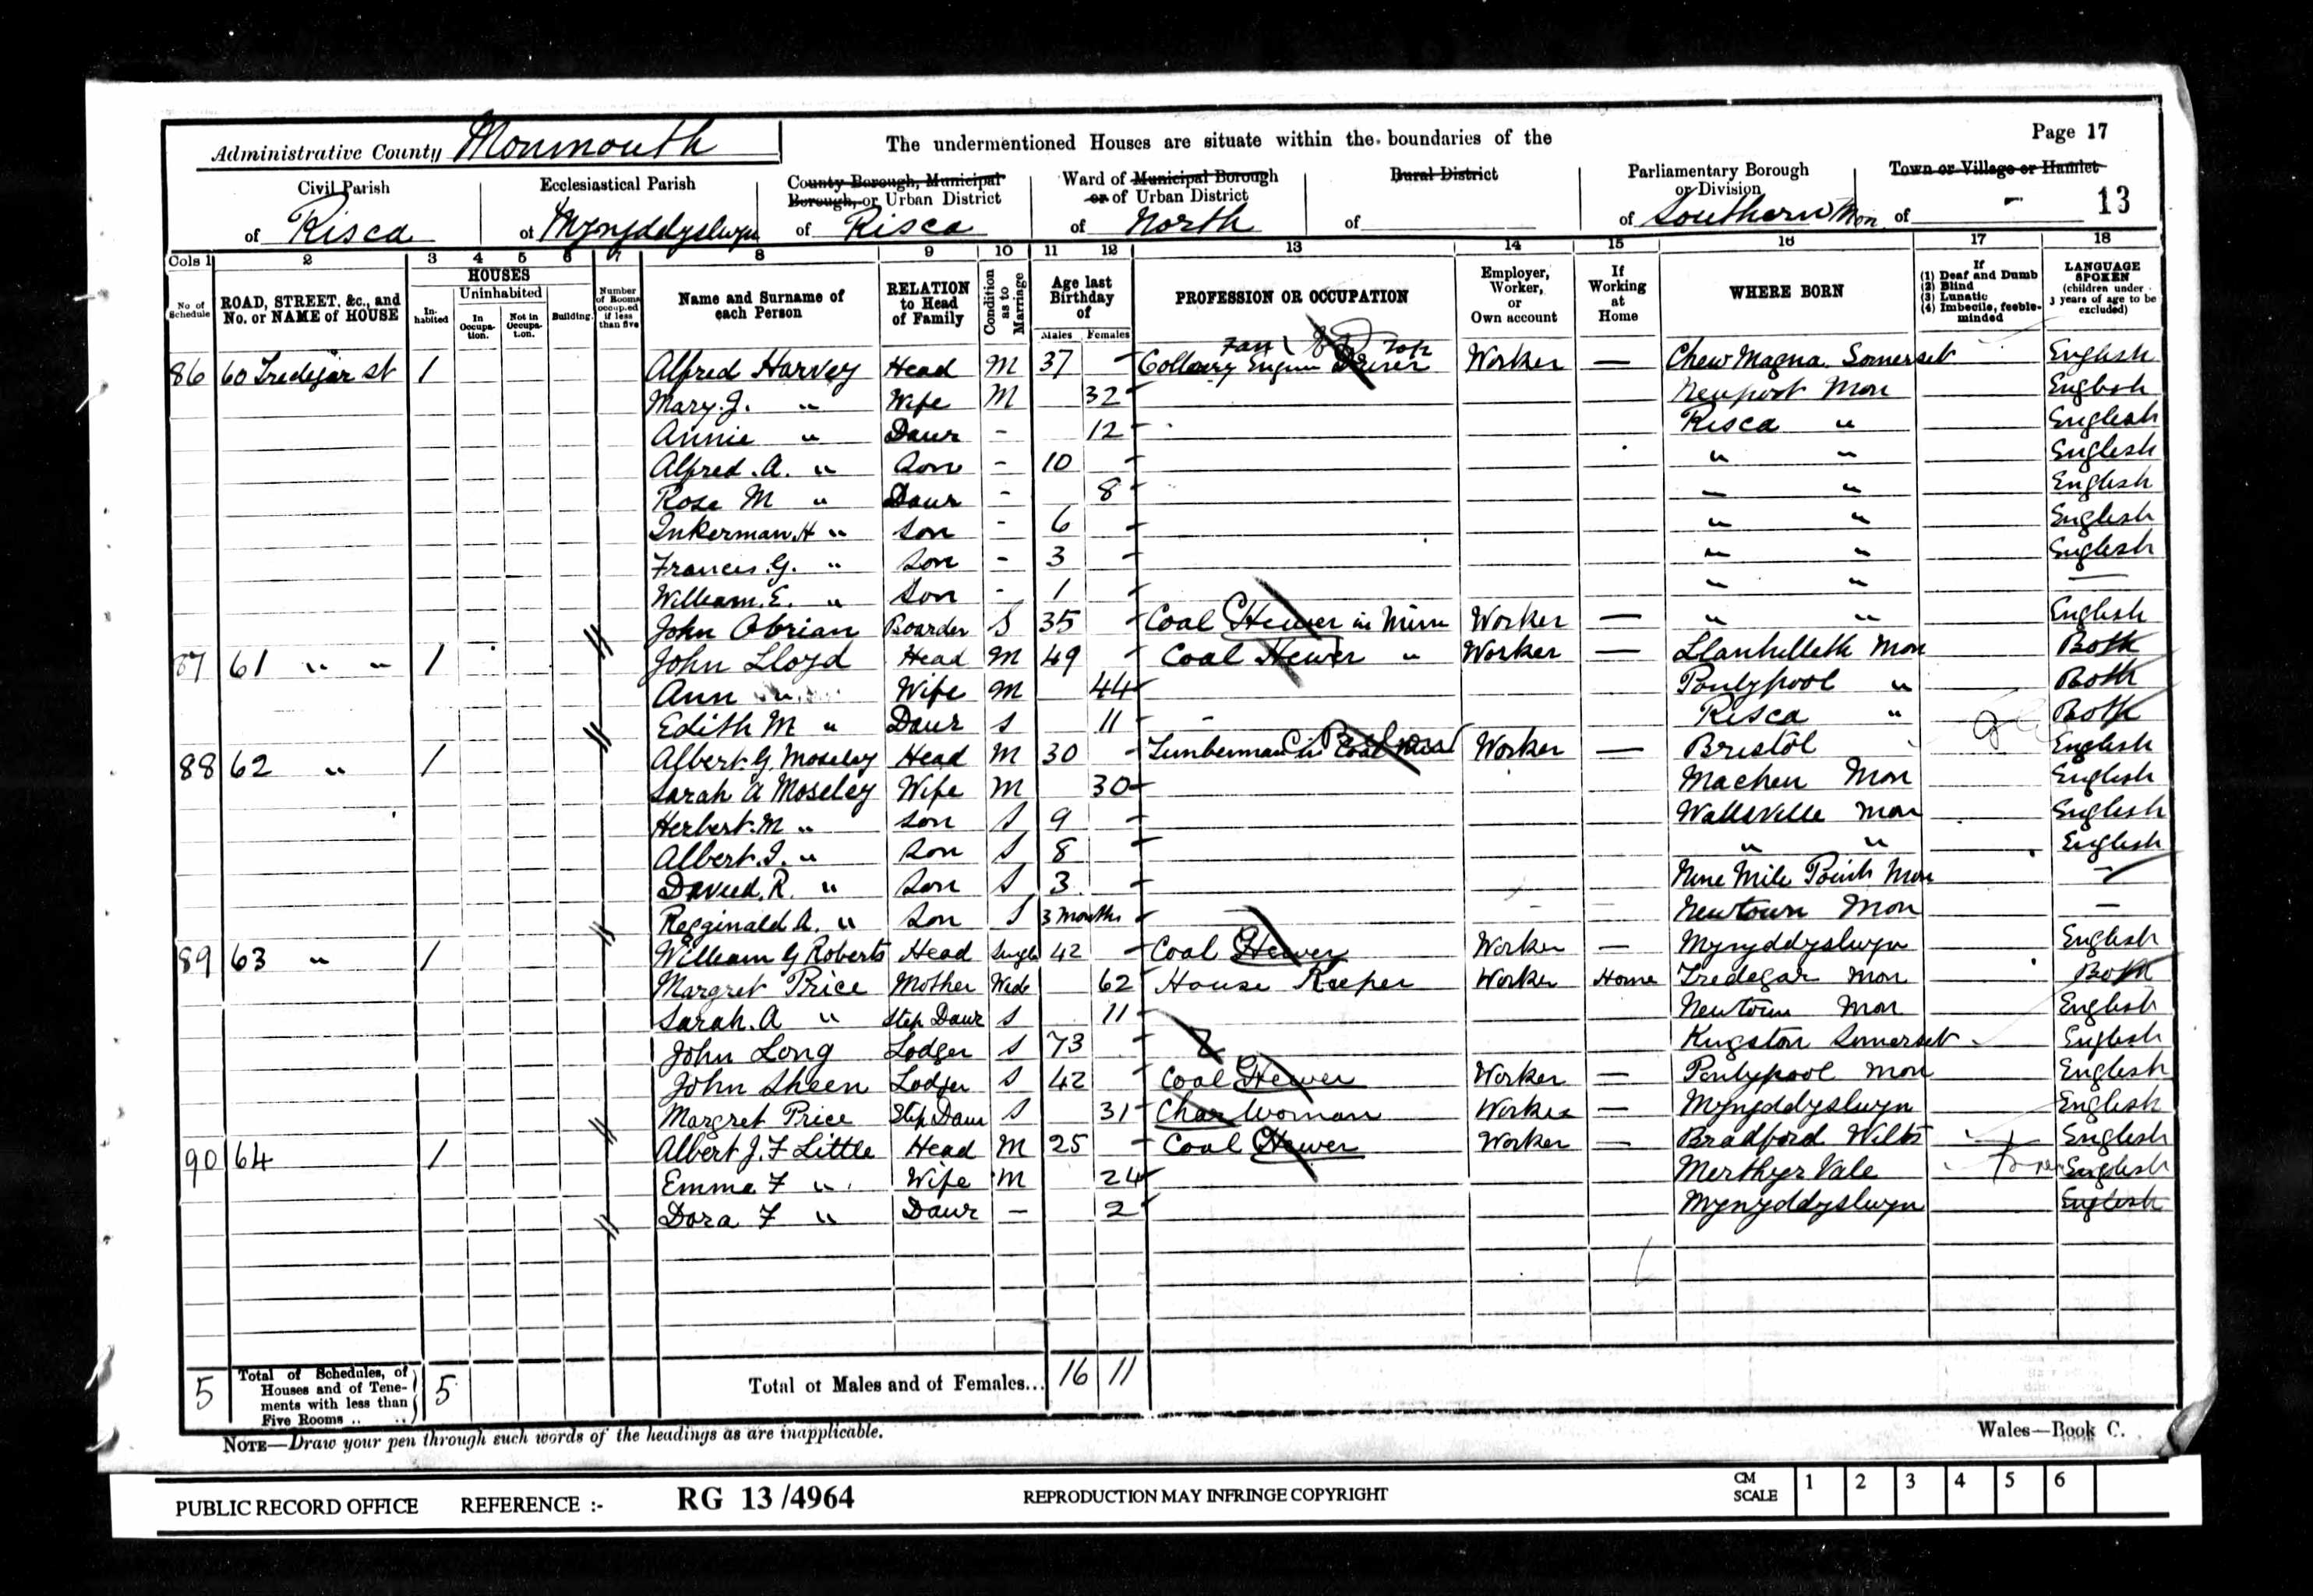 Administrative County Monmouth
The undermentioned Houses are situate within the boundaries of the
Page 17
Civil Parish of Risca
Ecclesiastical Parish of Mynyddyslwyn
County Borough, Municipal Borough, or Urban District of Risca
Ward of Municipal Borough or of Urban District of North
Rural District of
Parliamentary Borough or Division of Southern Mon
Town or Village or Hamlet of -
13
Cols 1 2 3 4 5 6 7 8 9 10 11 12 13 14 15 16 17 18
No. of Schedule
ROAD, STREET, &c., and No. or NAME of HOUSE
HOUSES
Inhabited
Uninhabited
In Occupation.
Not in Occupation.
Building.
Number of Rooms occupied if less than five
Name and Surname of each Person
RELATION to Head of Family
Condition as to Marriage
Age last Birthday of
Males Females
PROFESSION OR OCCUPATION
Employer, Worker, or Own account
If Working at Home
WHERE BORN
If (1) Deaf and Dumb (2) Blind (3) Lunatic (4) Imbecile, feeble-minded
LANGUAGE SPOKEN (children under 3 years of age to be excluded)
86 60 Tredegar st 1 Alfred Harvey Head M 37 - Colliery Engine Driver Worker — Chew Magna Somerset English
Mary. J. " Wife M 32 Newport Mon English
Annie " Daur - 12 Risca " English
Alfred. A. " Son - 10 " " English
Rose M " Daur - 8 " " English
Inkerman. H " Son - 6 " " English
Francis. G. " Son - 3 " " English
William. E. " Son - 1 " " —
John Obrian Boarder S 35 Coal Hewer in Mine Worker — " " English
87 61 " " 1 John Lloyd Head M 49 Coal Hewer " Worker — Llanhilleth Mon Both
Ann " Wife M 44 Pontypool " Both
Edith M " Daur S 11 - Risca " Both
88 62 " 1 Albert G. Moseley Head M 30 Timberman in Coal Worker — Bristol English
Sarah A Moseley Wife M 30 Machen Mon English
Herbert. M " Son S 9 Wattsville Mon English
Albert. I. " Son S 8 " " English
David. R. " Son S 3 Nine Mile Point Mon —
Regginald A. " Son S 3 months Newtown Mon —
89 63 " 1 William G Roberts Head Single 42 Coal Hewer Worker — Mynyddyslwyn English
Margret Price Mother Wid 62 House Keeper Worker Home Tredegar Mon Both
Sarah. A " Step Daur S 11 Newtown Mon English
John Long Lodger S 73 Kingston Somerset English
John Sheen Lodger S 42 Coal Hewer Worker — Pontypool Mon English
Margret Price Step Daur S 31 Char Woman Worker — Mynyddyslwyn English
90 64 1 Albert J. F Little Head M 25 Coal Hewer Worker — Bradford Wilts English
Emma F " Wife M 24 Merthyr Vale English
Dora F " Daur — 2 Mynyddyslwyn English
5 Total of Schedules, of Houses and of Tenements with less than Five Rooms .. .. 5
Total of Males and of Females... 16 11
NOTE—Draw your pen through such words of the headings as are inapplicable.
Wales—Book C.
PUBLIC RECORD OFFICE REFERENCE :- RG 13 /4964 REPRODUCTION MAY INFRINGE COPYRIGHT CM SCALE 1 2 3 4 5 6